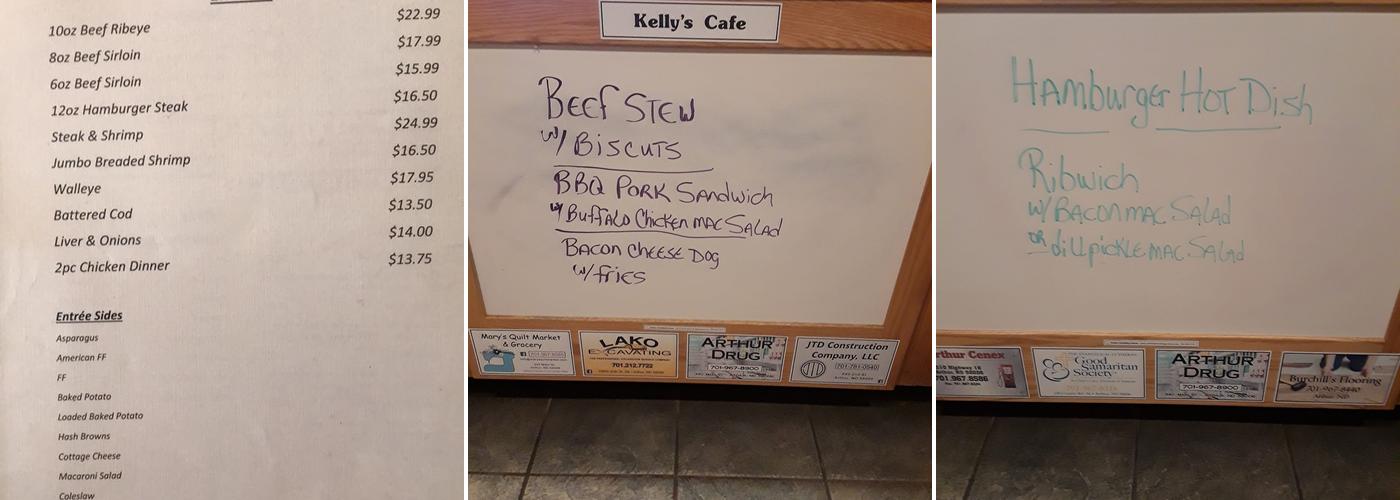 10oz Beef Ribeye $22.99
8oz Beef Sirloin $17.99
6oz Beef Sirloin $15.99
12oz Hamburger Steak $16.50
Steak & Shrimp $24.99
Jumbo Breaded Shrimp $16.50
Walleye $17.95
Battered Cod $13.50
Liver & Onions $14.00
2pc Chicken Dinner $13.75
Entrée Sides
Asparagus
American FF
FF
Baked Potato
Loaded Baked Potato
Hash Browns
Cottage Cheese
Macaroni Salad
Coleslaw
Kelly's Cafe
BEEF STEW
w/ BISCUTS
BBQ PORK SANdwich
w/ BUFFALO CHICKEN MAC SALAd
BACON CHEESE DOG
w/ fries
Mary's Quilt Market
& Grocery
LAKO
EXCAVATING
701.212.7722
ARTHUR
DRUG
701-967-8900
JTD Construction
Company, LLC
(701-781-0540)
HAMburger HOT Dish
Ribwich
w/ BACON MAC SALAd
OR dill pickle MAC SALAd
Arthur Cenex
701.967.8586
Good
Samaritan
Society
ARTHUR
DRUG
701-967-8900
Burchill's Flooring
701-967-8440
Arthur, ND